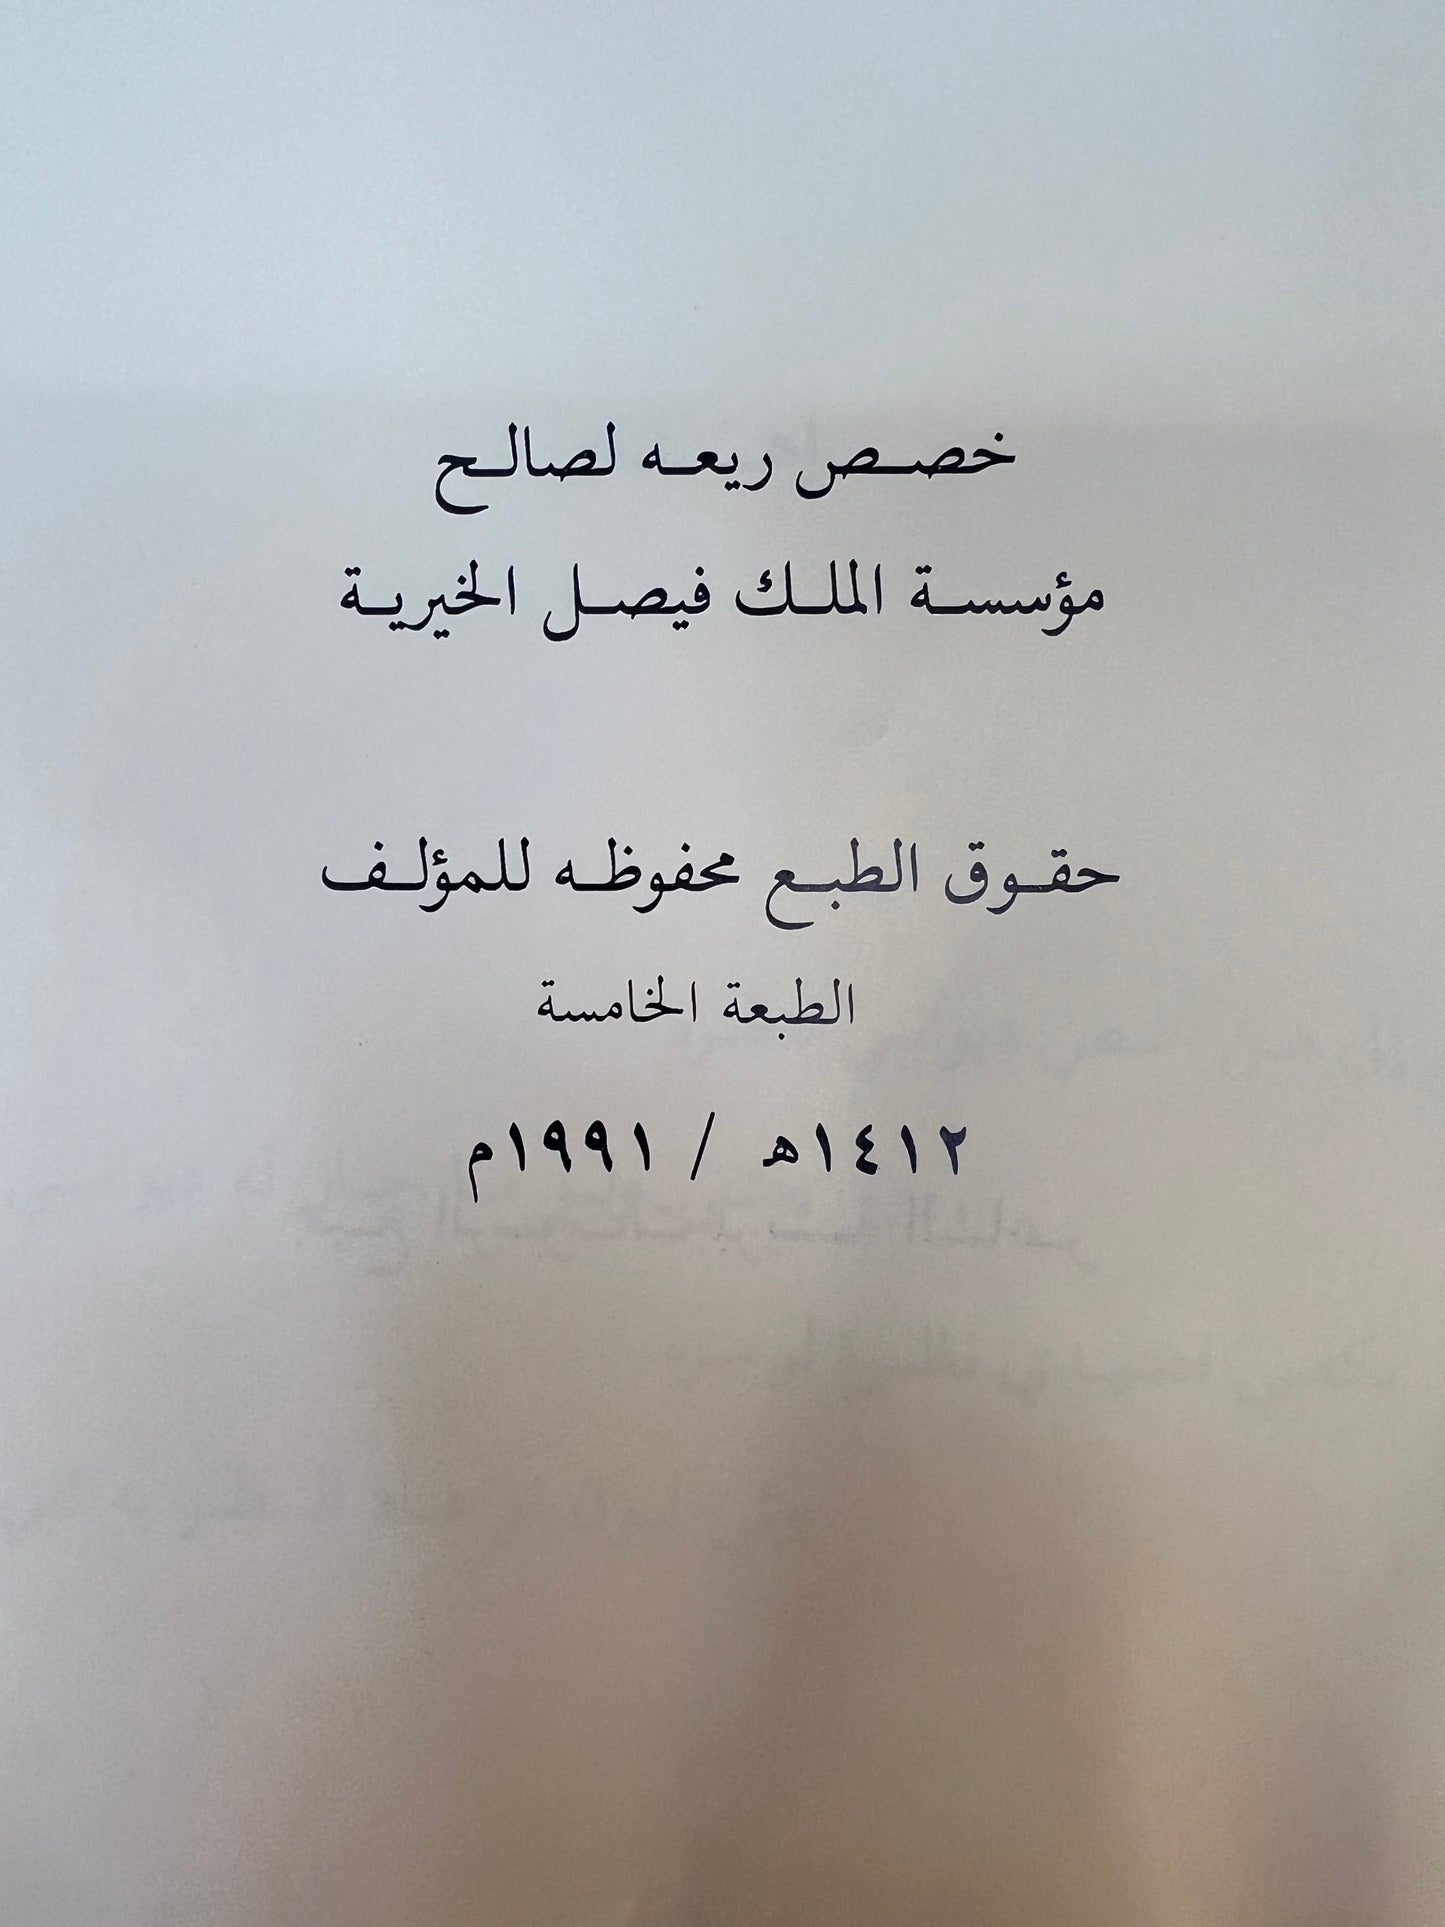 خصص ريعه لصالح
مؤسسة الملك فيصل الخيرية
حقوق الطبع محفوظه للمؤلف
الطبعة الخامسة
١٤١٢هـ / ١٩٩١م